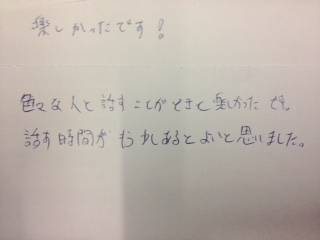 楽しかったです!
色々な人と話すことができて楽しかったです。
話す時間がもう少しあるとよいと思いました。